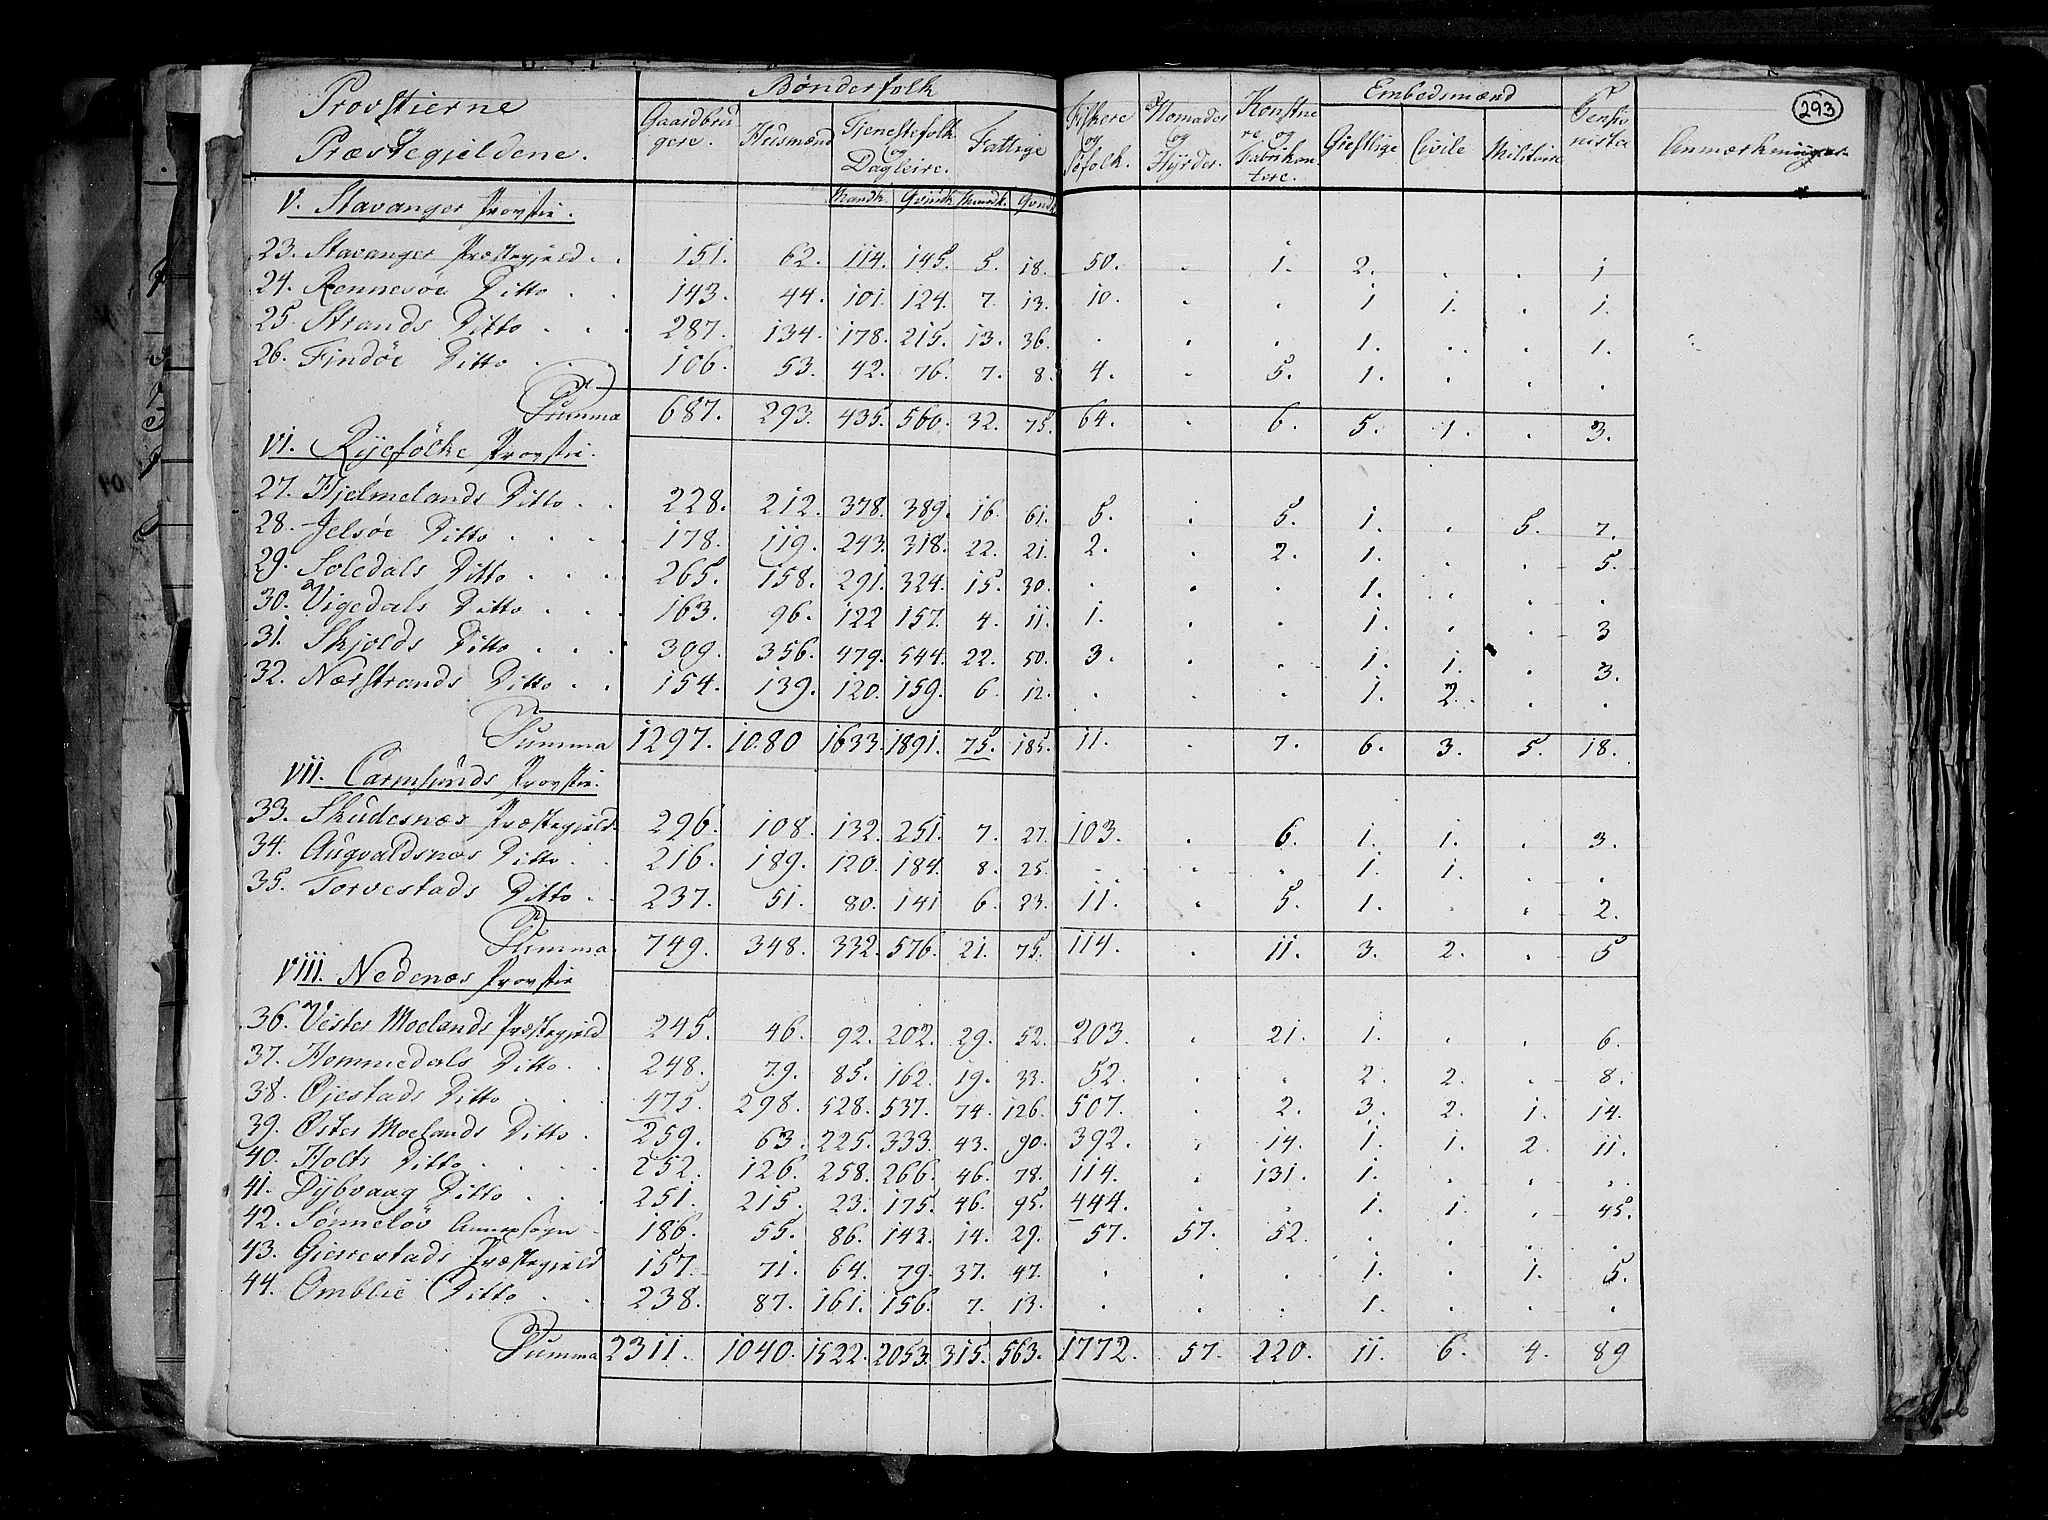 293
Provstierne og Præstegjeldene. | Bønderfolk | Embedsmænd
Gaardbrugere. | Huusmænd | Tienestefolk og Dagleire. | Fattige | Fiskere og Søfolk. | Nomader og Hyrder. | Konstnere og Fabrikantere. | Giestlige | Civile | Militaire | Pensionister | Anmærkninger
Mandk. | Qvindk. | Mandk. | Qvindk
V. Stavanger Provstie.
23. Stavanger Præstegjeld . . 151. 62. 114. 145. 5. 18. 50. . 1. 2. . . 1
24. Rennesøe Ditto . . 143. 44. 101. 124. 7. 13. 10. . . 1 1. . 1.
25. Strands Ditto . . . 287. 134. 178. 215. 13. 36. . . . 1. . . 1.
26. Findöe Ditto . . 106. 53. 42. 76. 7. 8. 4. . 5. 1. . . .
Summa 687. 293. 435. 560. 32. 75. 64. . 6. 5. 1. . 3.
VI. Ryefölke Provstie.
27. Hjelmelands Ditto . . 228. 212. 378. 389. 16. 61. 5. . 5. 1. . 5. 7.
28. Jelsöe Ditto . . . . 178. 119. 243. 318. 22. 21. 2. . 2. 1. . . 5.
29. Soledals Ditto . . . 265. 158. 291. 324. 15. 30. . . . 1. . . .
30. Vigedals Ditto . . . 163. 96. 122 157. 4. 11. 1. . . 1. . . 3
31. Skjolds Ditto . . . 309. 356. 479. 544. 22. 50. 3. . . 1. 1. . 3.
32. Nærstrands Ditto . . 154. 139. 120. 159. 6. 12. . . . 1. 2. . .
Summa 1297. 1080 1633. 1891. 75. 185. 11. . 7. 6. 3. 5. 18.
VII. Carmsunds Provstie.
33. Skudesnæs Præstegjeld. 296. 108. 132. 251. 7. 27. 103. . 6. 1. 1. . 3.
34. Augvaldsnæs Ditto . . 216. 189. 120. 184. 8. 25. . . . 1. 1. . .
35. Torvestads Ditto . . 237. 51. 80. 141 6. 23. 11. . 5. 1. . . 2.
Summa. 749. 348. 332. 576. 21. 75. 114. . 11. 3. 2. . 5
VIII. Nedenæs Provstie
36. Vester Moelands Præstegjeld 245. 46. 92. 202. 29. 52. 203. . 21. 1. . . 6.
37. Hommedals Ditto . . 248. 79. 85. 162. 19. 33. 52. . . 2. 2. . 8.
38. Øiestads Ditto . . . 475. 298. 528. 537. 74. 126. 507. . 2. 3. 2. 1. 14.
39. Øster Moelands Ditto . 259. 63. 225. 333. 43. 90. 392. . 14. 1. 1. 2. 11.
40. Holts Ditto . . . . 252. 126. 258. 266. 46. 78. 114. . 131. 1. . . .
41. Dybvaag Ditto . . . 251. 215. 23. 175. 46. 95. 444. . . 1. 1. . 45.
42. Sønneløv Annexsogn . 186. 55. 86. 143. 14. 29. 57. 57. 52. . . . .
43. Gierrestads Præstegjeld 157. 71. 64. 79. 37. 47. . . . 1. . 1. 5.
44. Omblie Ditto . . 238. 87. 161. 156. 7. 13. . . . 1. . . .
Summa 2311. 1040. 1522. 2053. 315. 563. 1772. 57. 220. 11. 6. 4. 89